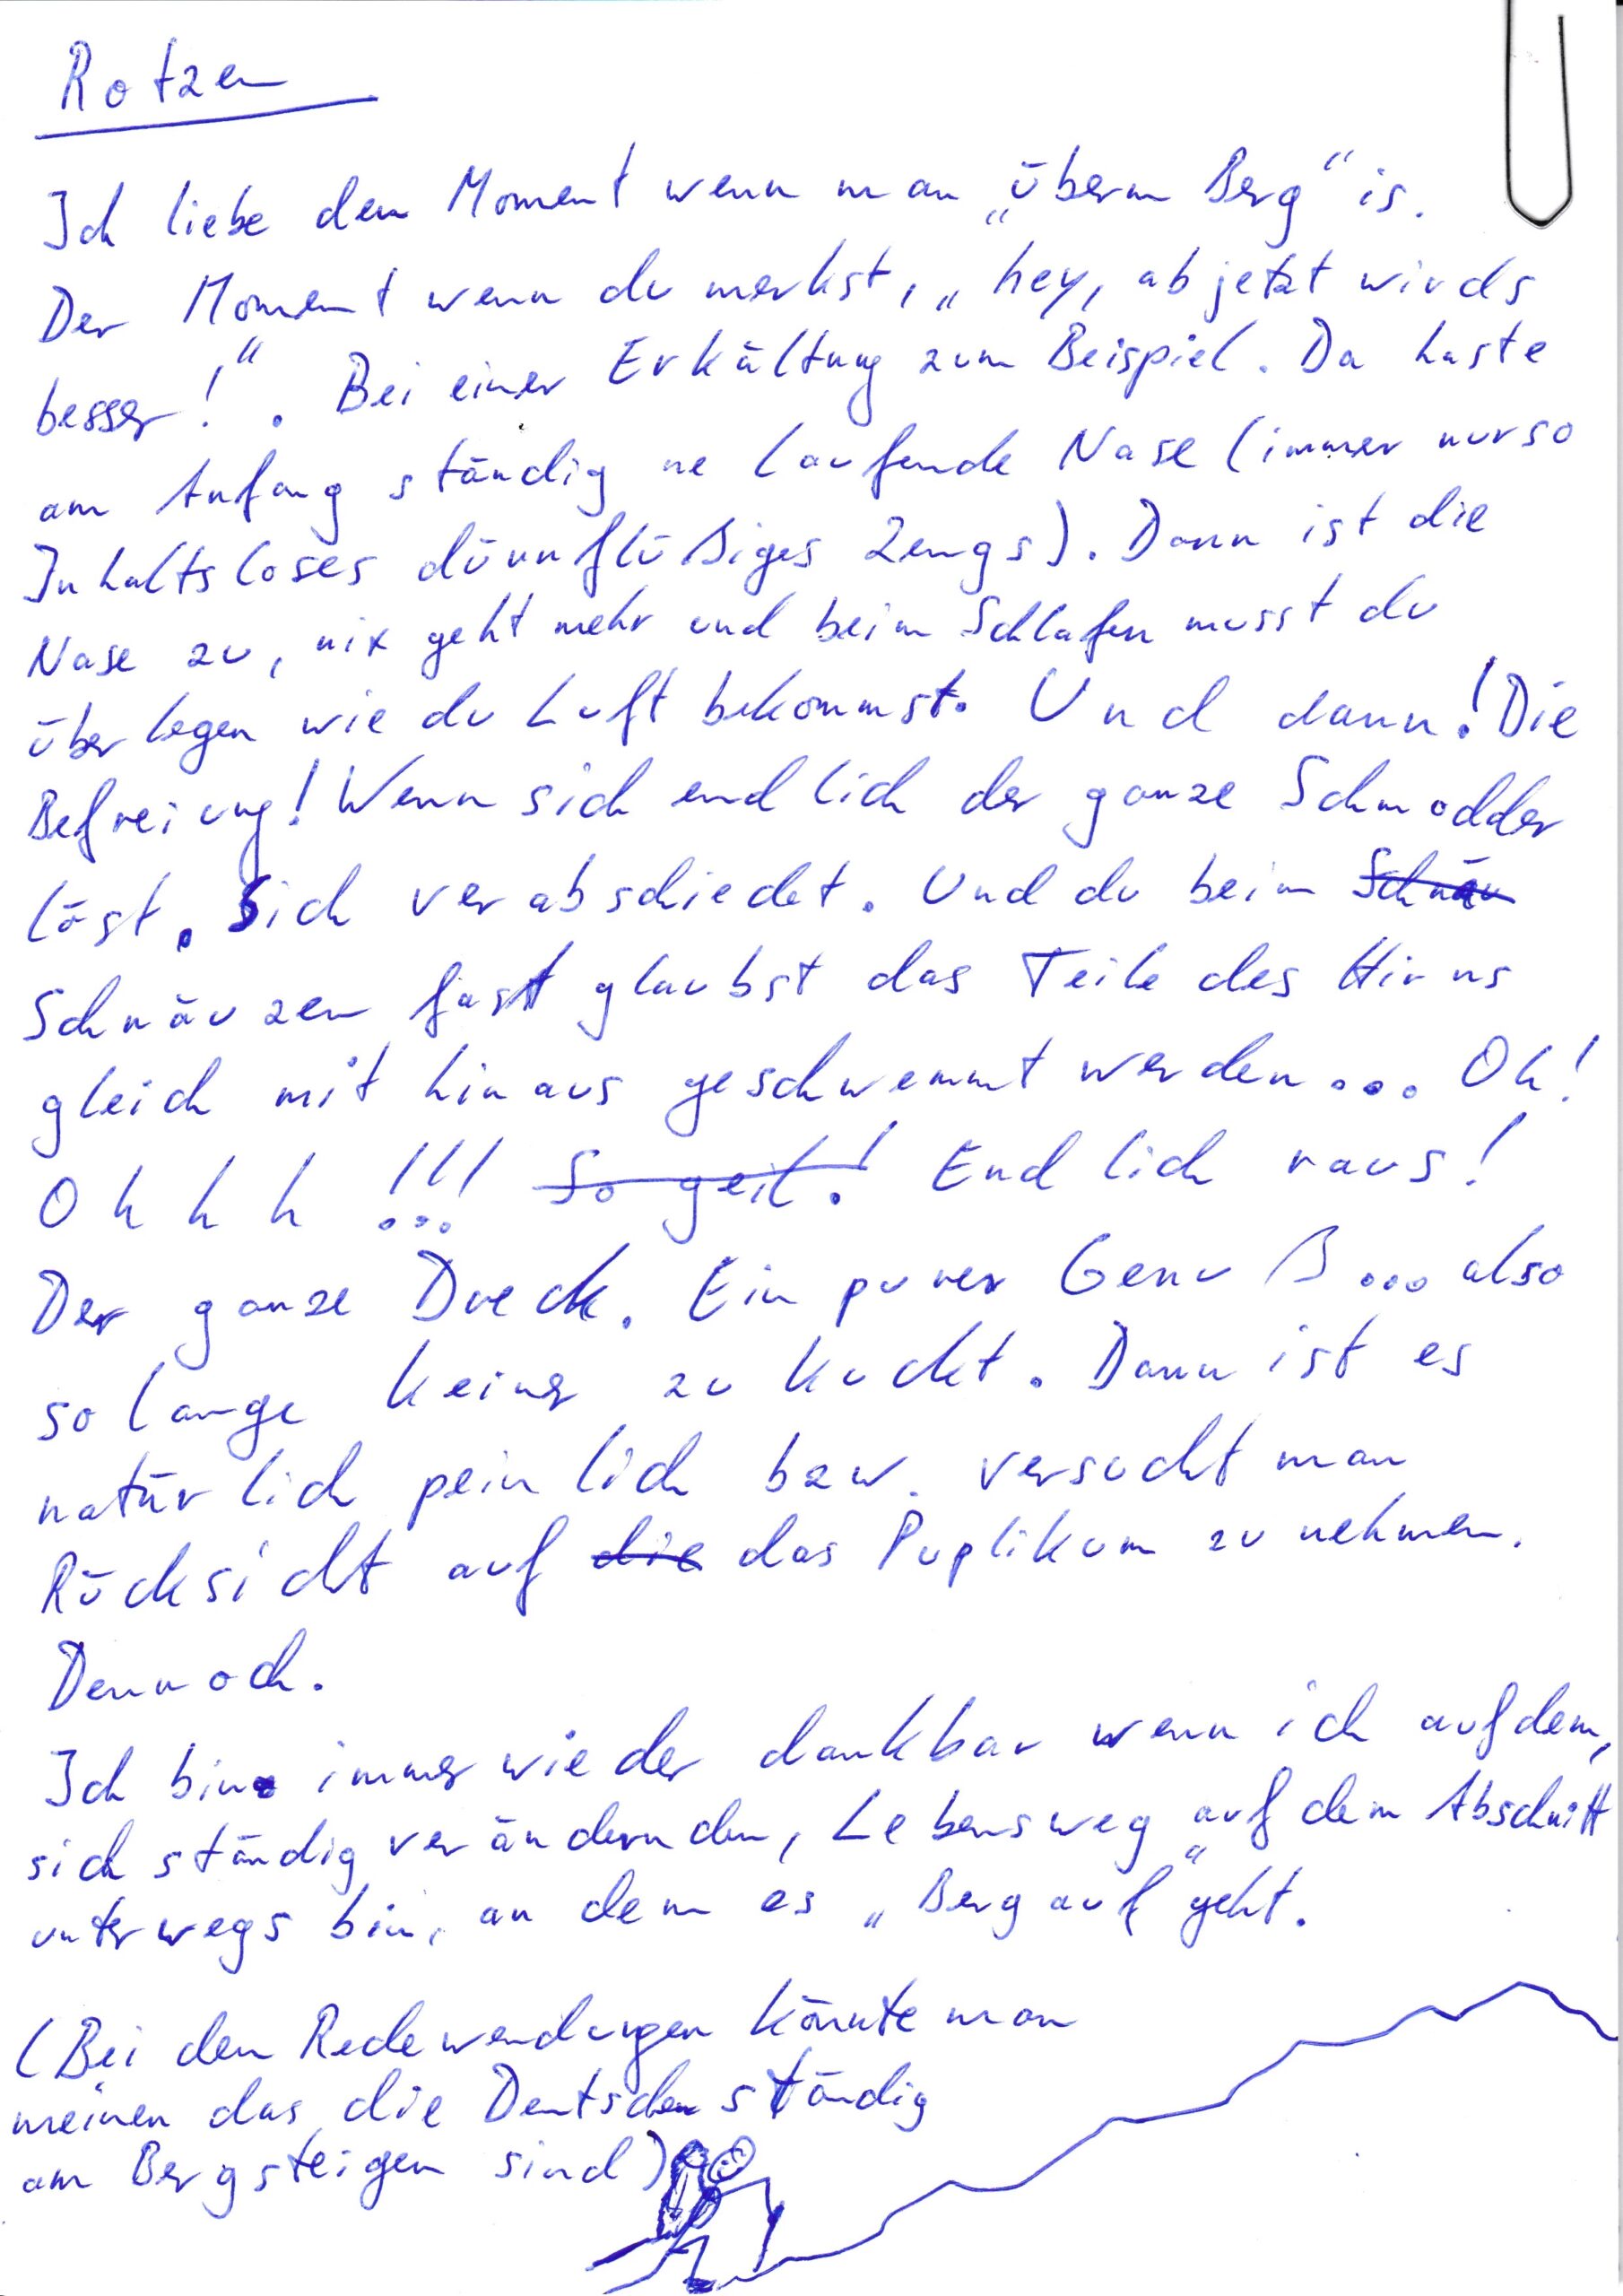 Rotzen
Ich liebe den Moment wenn man „überm Berg" is.
Der Moment wenn du merkst, „hey, ab jetzt wirds
besser!". Bei einer Erkältung zum Beispiel. Da haste
am Anfang ständig ne laufende Nase (immer nur so
Inhaltsloses dünnflüßiges Zeugs). Dann ist die
Nase zu, nix geht mehr und beim Schlafen musst du
überlegen wie du Luft bekommst. Und dann! Die
Befreiung! Wenn sich endlich der ganze Schmodder
löst. Sich verabschiedet. Und du beim Schnäu
Schnäuzen fast glaubst das Teile des Hirns
gleich mit hinaus geschwemmt werden... Oh!
Ohhh!!! So geil! Endlich raus!
Der ganze Dreck. Ein purer Genuß... also
solange keiner zu kuckt. Dann ist es
natürlich peinlich bzw. versucht man
Rücksicht auf die das Puplikum zu nehmen.
Dennoch.
Ich bin immer wieder dankbar wenn ich auf dem,
sich ständig verändernden, Lebensweg auf dem Abschnitt
unterwegs bin, an dem es „Berg auf" geht.
(Bei den Redewendungen könnte man
meinen das die Deutschen ständig
am Bergsteigen sind)